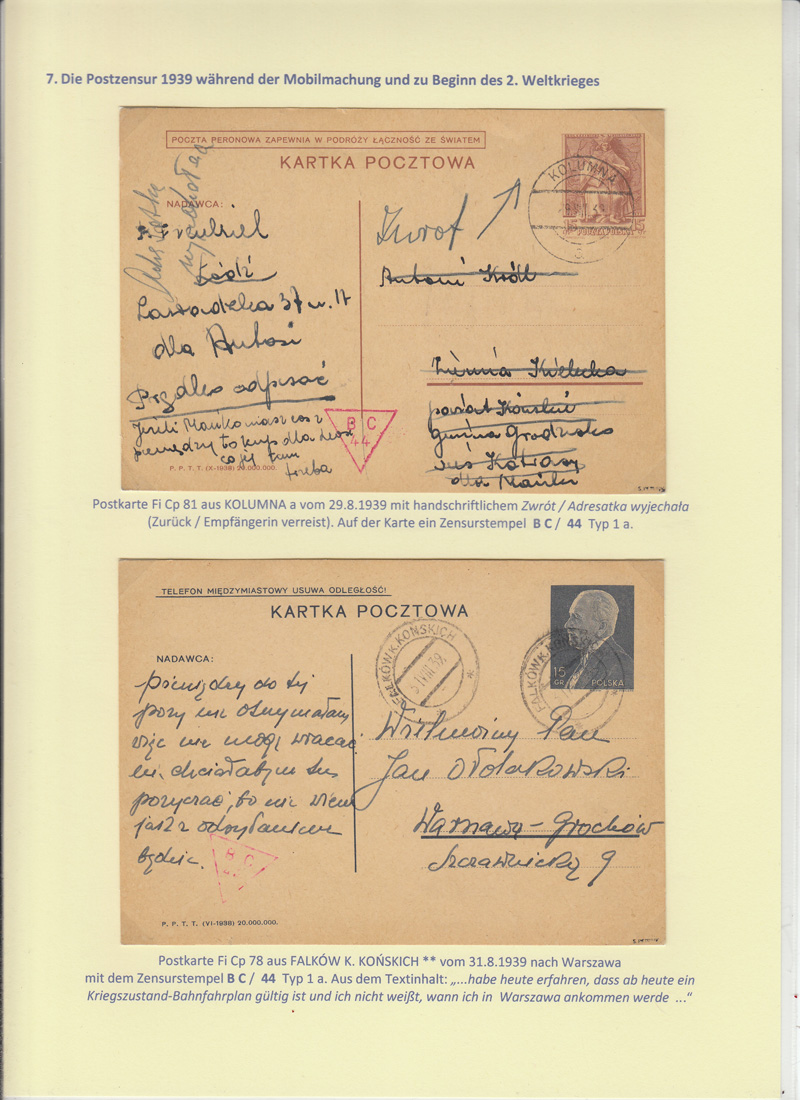 7. Die Postzensur 1939 während der Mobilmachung und zu Beginn des 2. Weltkrieges
POCZTA PERONOWA ZAPEWNIA W PODRÓŻY ŁĄCZNOŚĆ ZE ŚWIATEM
KARTKA POCZTOWA
NADAWCA:
KOLUMNA
Adresatka
wyjechała
Zwrot
Łódź
37 m. 17
dla Antosi
odpisać
Antoni Król
Ziemia Kielecka
powiat Końskie
gmina Grodzisko
wieś
dla Mańki
B C
44
pieniędzy to kup dla
trzeba
P. P. T. T. (X-1938) 20.000.000.
Postkarte Fi Cp 81 aus KOLUMNA a vom 29.8.1939 mit handschriftlichem Zwrót / Adresatka wyjechała
(Zurück / Empfängerin verreist). Auf der Karte ein Zensurstempel B C / 44 Typ 1 a.
TELEFON MIĘDZYMIASTOWY USUWA ODLEGŁOŚĆ!
KARTKA POCZTOWA
NADAWCA:
FAŁKÓW K. KOŃSKICH
31 VIII 39
FAŁKÓW K. KOŃSKICH
15
GR. POLSKA
Pieniędzy do tej
pory nie otrzymałam
więc nie mogę wracać
nie chciałabym tu
pożyczać, bo nie wiem
jak z odsyłaniem
będzie.
Wielmożny Pan
Jan
Warszawa-Grochów
Szczawnicka 9
B C
P. P. T. T. (VI-1938) 20.000.000.
Postkarte Fi Cp 78 aus FALKÓW K. KOŃSKICH ** vom 31.8.1939 nach Warszawa
mit dem Zensurstempel B C / 44 Typ 1 a. Aus dem Textinhalt: „...habe heute erfahren, dass ab heute ein
Kriegszustand-Bahnfahrplan gültig ist und ich nicht weißt, wann ich in Warszawa ankommen werde ...“